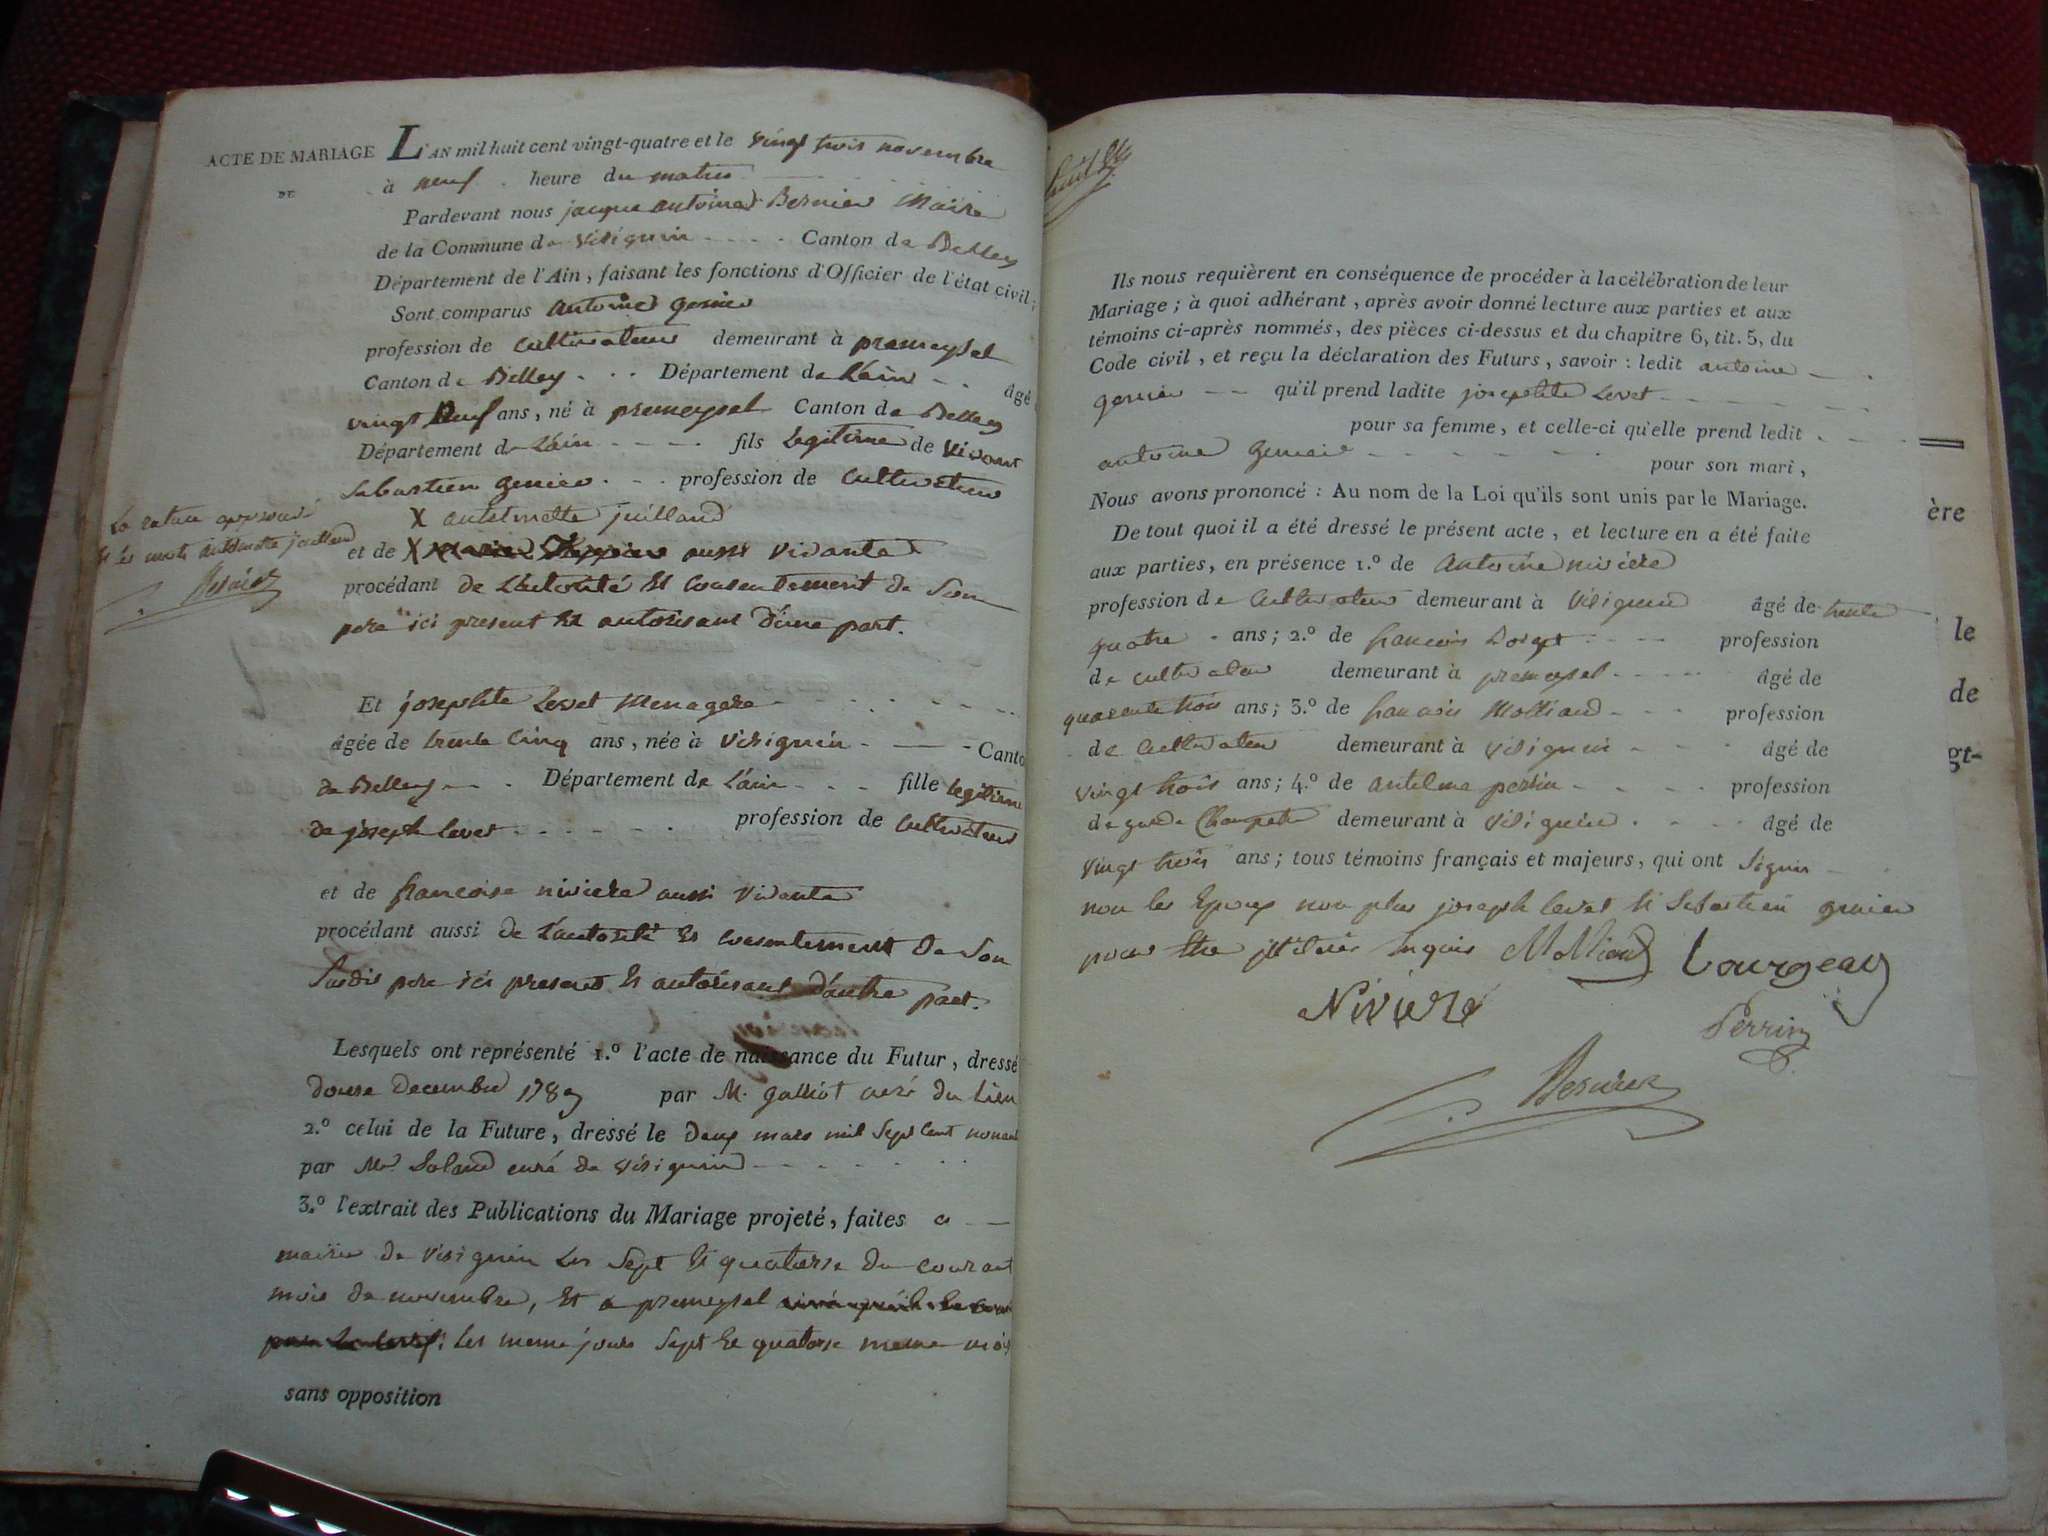 ACTE DE MARIAGE
DE
L'AN mil huit cent vingt-quatre et le vingt trois novembre
à neuf heure du matin
Pardevant nous jacque antoine Bernier Maire
de la Commune de virignin Canton de Belley
Département de l'Ain, faisant les fonctions d'Officier de l'état civil;
Sont comparus antoine genier
profession de cultivateur demeurant à premeysel
Canton de Belley Département de Lain âgé
vingt Neuf ans, né à premeysel Canton de Belley
Département de Lain fils Legitime de vivant
Sebastien genier profession de cultivateur
X antelmette juilland
La rature approuvé
et les mots antelmette juilland
Bernier
et de X aussi vivante
procédant de Lautorité et consentement de Son
pere ici present et autorisant d'une part.
Et josephte Levet Menagere
âgée de trente Cinq ans, née à virignin Canto
de Belley Département de Lain fille legitime
de joseph levet profession de cultivateur
et de francoise niviere aussi vivante
procédant aussi de Lautorité et consentement de Son
Susdit pere ici present et autorisant d'autre part.
Lesquels ont représenté 1.º l'acte de naissance du Futur, dressé
douse decembre 1789 par M. galliot curé du Lieu
2.º celui de la Future, dressé le deux mars mil sept cent nonant
par Mr. curé de virignin
3.º l'extrait des Publications du Mariage projeté, faites a
mairie de virignin Les Sept et quatorse du courant
mois de novembre, et a premeysel
Les meme jours Sept et quatorse meme mois
sans opposition
Ils nous requièrent en conséquence de procéder à la célébration de leur
Mariage; à quoi adhérant, après avoir donné lecture aux parties et aux
témoins ci-après nommés, des pièces ci-dessus et du chapitre 6, tit. 5, du
Code civil, et reçu la déclaration des Futurs, savoir : ledit antoine
genier qu'il prend ladite josephte Levet
pour sa femme, et celle-ci qu'elle prend ledit
antoine genier pour son mari,
Nous avons prononcé : Au nom de la Loi qu'ils sont unis par le Mariage.
De tout quoi il a été dressé le présent acte, et lecture en a été faite
aux parties, en présence 1.º de Antoine niviere
profession de cultivateur demeurant à virignin âgé de trente
quatre ans; 2.º de francois profession
de cultivateur demeurant à premeysel âgé de
quarente trois ans; 3.º de francois Molliand profession
de cultivateur demeurant à virignin âgé de
vingt trois ans; 4.º de antelme perrin profession
de garde Champetre demeurant à virignin âgé de
vingt trois ans; tous témoins français et majeurs, qui ont Signés
non les Epoux non plus joseph levet et Sebastien genier
pour etre illiteré Enquis Molliand Lourgeau
Niviere
Perrin
Bernier
ère
le
de
gt-